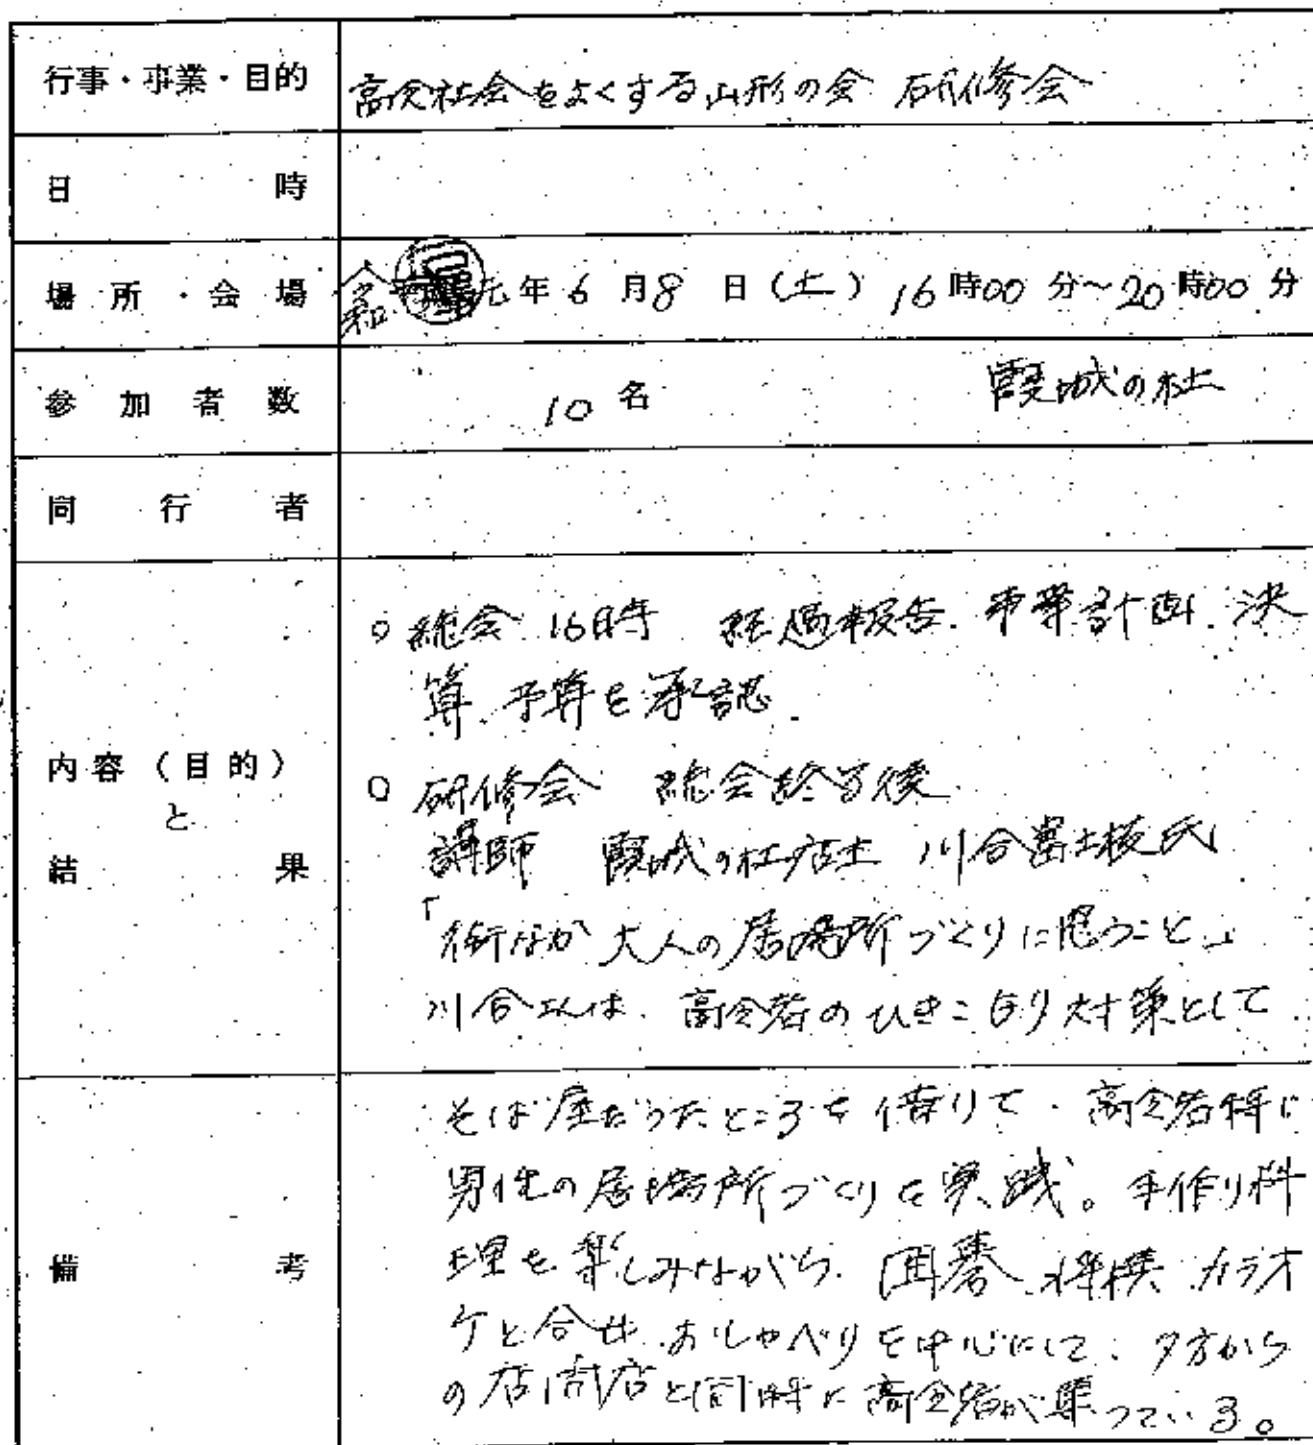 行事・事業・目的 高令社会をよくする山形の会 研修会
日時
場所・会場 令和元年6月8日(土) 16時00分~20時00分
参加者数 10名 霞城の杜
同行者
○ 総会 16時 経過報告.事業計画.決
算.予算を承認.
内容(目的)
と
結果
○ 研修会 総会終了後
講師 霞城の杜店主 川合富士枝氏
「街なか大人の居場所づくりに思うこと」
川合さんは.高令者のひきこもり対策として
そば屋だったところを借りて.高令者特に
男性の居場所づくりを実践。手作り料
備考
理を楽しみながら.囲碁.将棋.カラオ
ケと合せ.おしゃべりを中心にして、夕方から
の店開店と同時に高令者が集っている。